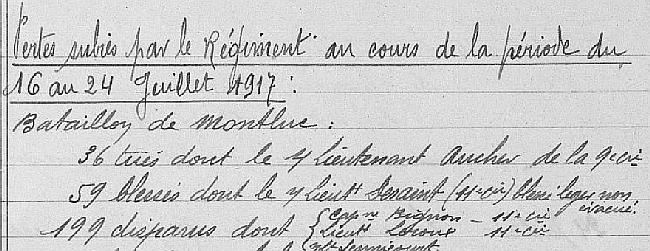 Pertes subies par le Régiment au cours de la période du
16 au 24 Juillet 1917 :
Bataillon de Montluc :
36 tués dont le S/ Lieutenant Ancher de la 9e Cie
59 blessés dont le S/ Lieutt Sesaint (11e Cie) blessé léger non
évacué.
199 disparus dont { Capne Bignon - 11e Cie
Lieutt Leroux - 11e Cie